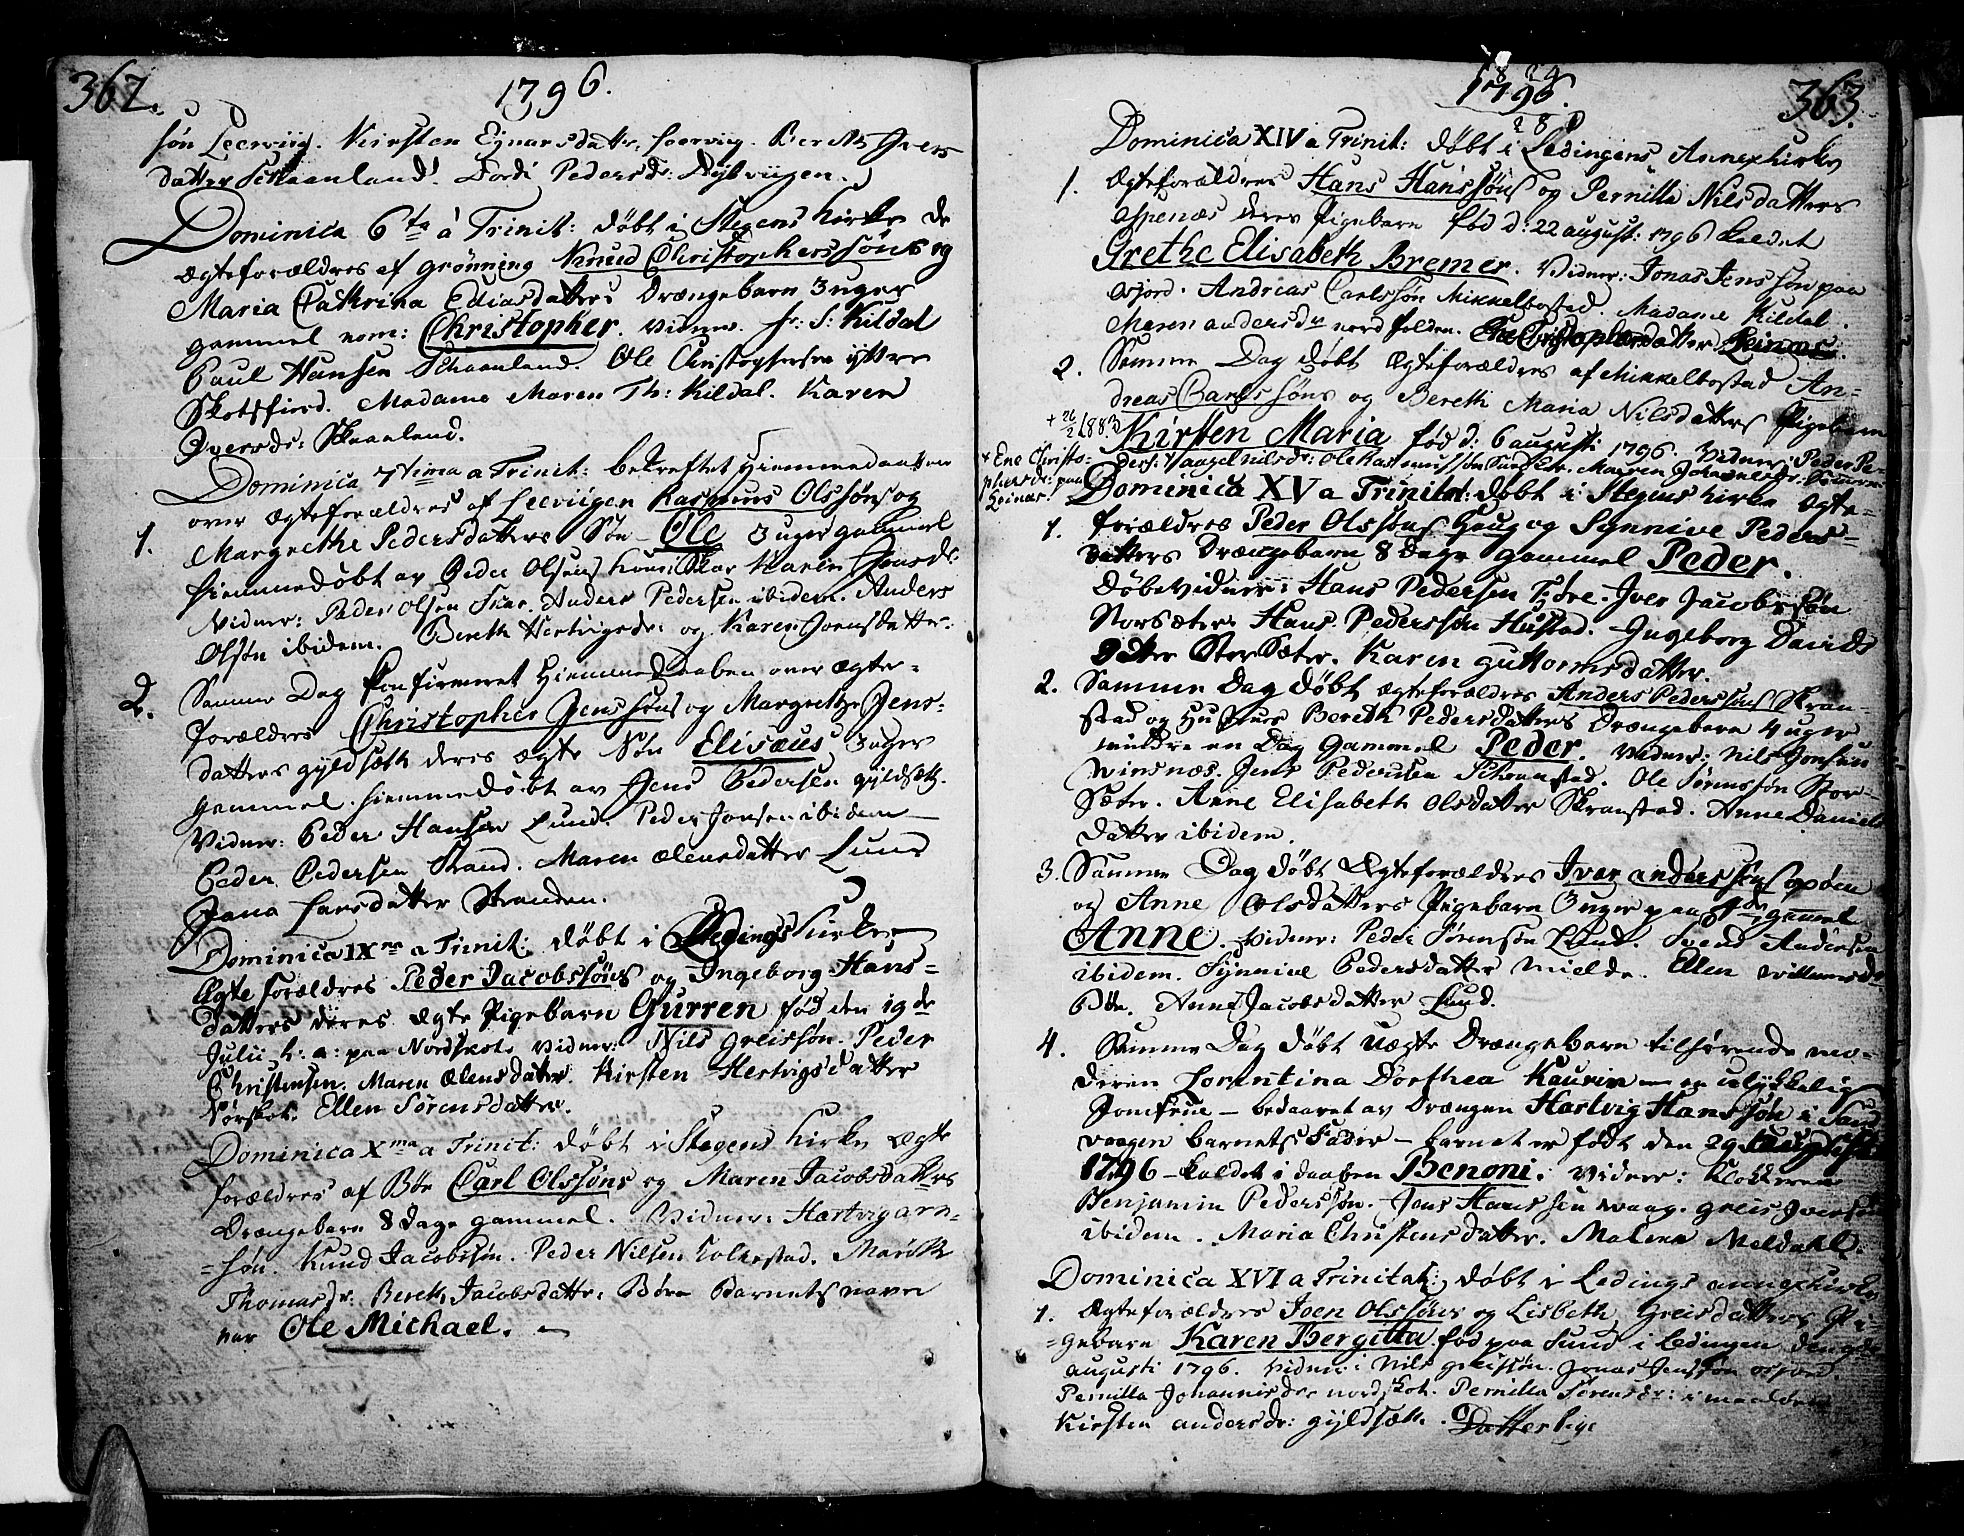 362.
1796.
søn Leerviig. Kirsten Ejnarsdatter, Leervig. Bereth Ivers
datter Schaanland.
Dominica 6ta à Trinit: døbt i Stegens Kirke de
Ægteforældres af Grønning Knud Christopherssøns og
Maria Cathrina Eliasdatters Drængebarn 3 uger
gammel nom: Christopher. Vidner. Hr: S: Kildal
Paul Hansen Schaanland. Ole Christophersen yttre
Skotsfiord. Madame Maren Th: Kildal. Karen
Iversdr: Skaanland.
Dominica 7tima a Trinit: bekreftet Hiemmedaaben
over Ægteforældres af Leerviigen Rasmus Olssøns og
1. Margrethe Pedersdatters Søn - Ole 3 uger gammel
hiemmedøbt av Peder Olsens Kone Skar Karen Jensdr:
Vidner: Peder Olsen Skar. Anders Pedersen ibidem. Anders
Olsøn ibidem. Bereth Hertvigsdr: og Karen Joensdatter.
2. Samme Dag Konfirmeret Hiemme Daaben over Ægte-
forældres Christopher Jenssøns og Margrethe Jens-
datters Gyldsæth deres ægte Søn Elisæus 3 uger
gammel hiemmedøbt av Jens Pedersen Gyldsæth.
Vidner: Peder Hansen Lund. Peder Jonsen ibidem
Peder Pedersen Strand. Maren Elensdatter Lund
Jana Larsdatter Stranden.
Dominica IXna a Trinit: døbt i Lødings Kirke
Ægteforældres Peder Jacobssøns og Ingeborg Hans-
datters deres Ægte Pigebarn Gurren fød den 19de
Julii h: a: paa Nordskot. Vidner: Nils Greissøn. Peder
Christensen. Maren Elensdatter. Kirsten Hertvigsdatter
Nørskot. Ellen Sørensdatter.
Dominica Xma a Trinit: døbt i Stegens Kirke Ægte
forældres af Bøe Carl Olssøns og Maren Jacobsdatters
Drængebarn 8 dage gammel. Vidner: Hartvig Arn-
=søn. Knud Jacobssøn. Peder Nilsen Kolkestad. Marith
Thomasdr: Bereth Jacobsdatter Böe Barnets navn
var Ole Michael.
363.
1824
1796.
28
Dominica XIV a Trinit: døbt i Lødingens Annexkirke
1. Ægteforældres Hans Hanssøns og Pernilla Nilsdatters
Aspenæs deres Pigebarn fød d: 22 august: 1796 kaldet
Grethe Elisabeth Bremer. Vidner: Jonas Jenssøn paa
Osjord. Andreas Carlssøn Mikkelbostad. Madame Kildal.
Maren Andersdr Nordfolden. Ene Christophersdatter Leinæs.
2. Samme Dag døbt Ægteforældres af Mikkelbostad An-
dreas Carlssøns og Bereth Maria Nilsdatters Pigebarn
+ 26/2 1883
Kirsten Maria fød d: 6 august: 1796. Vidner: Peder Pe-
+ Ene Christo-
phersdr: paa
Leinæs.
Dominica XV a Trinitat: døbt i Stegens Kirke Ægte-
1. forældres Peder Olssøns Haug og Synnive Peders-
datters Drængebarn 8 dage gammel Peder.
Døbevidner: Hans Pedersen Fjøre. Iver Jacobssøn
Storsæter. Hans Pederssøn Hustad. Ingeborg Davids
datter StorSæter. Karen Guttormsdatter.
2. Samme Dag døbt Ægteforældres Anders Pederssøns Skran-
stad og Hustrues Bereth Pedersdatters Drængebarn 4 uger
mindre en Dag gammel Peder. Vidner: Nils Jonsen
Winsnæs. Jens Pedersen Schranstad. Ole Sørenssøn Stor-
Sæter. Anne Elisabeth Olsdatter Skranstad. Anne Daniels
datter ibidem.
3. Samme Dag døbt Ægteforældres Iver Anderssens Opøen
og Anne Olsdatters Pigebarn 3 uger paa 4de gamel
Anne. Vidner: Peder Sørensøn Lund. Svend Andersen
ibidem. Synnive Pedersdatter Mielde. Ellen Willumsdr
Böe. Anne Jacobsdatter Lund.
4. Samme Dag døbt uægte Drængebarn tilhørende mo-
deren Lorentina Dorthea Kaurin - en ulykkelig
Jomfrue - bedaaret av Drængen Hartvig Hanssøn i Sand
vaagen barnets Fader - barnet er født den 29 august
1796 - kaldet i daaben Benoni. Vidner: Klokkeren
Benjamin Pederssøn. Jens Hanssen Waag. Greis Iversen
ibidem. Maria Christensdatter. Malena Meldahl.
Dominica XVI a Trinitat: døbt i Lødings annexkirke
1. Ægteforældres Joen Olssøns og Lisbeth Greisdatters Pi-
=gebarn Karen Bergitta fød paa Sund i Lødingen den 9de
augusti 1796. Vidner: Nils Greissøn. Jonas Jenssøn Osjord.
Pernilla Johannisdr Nordskot. Pernilla Sørensdr:
Kirsten Andersdr: Gyldsæth.